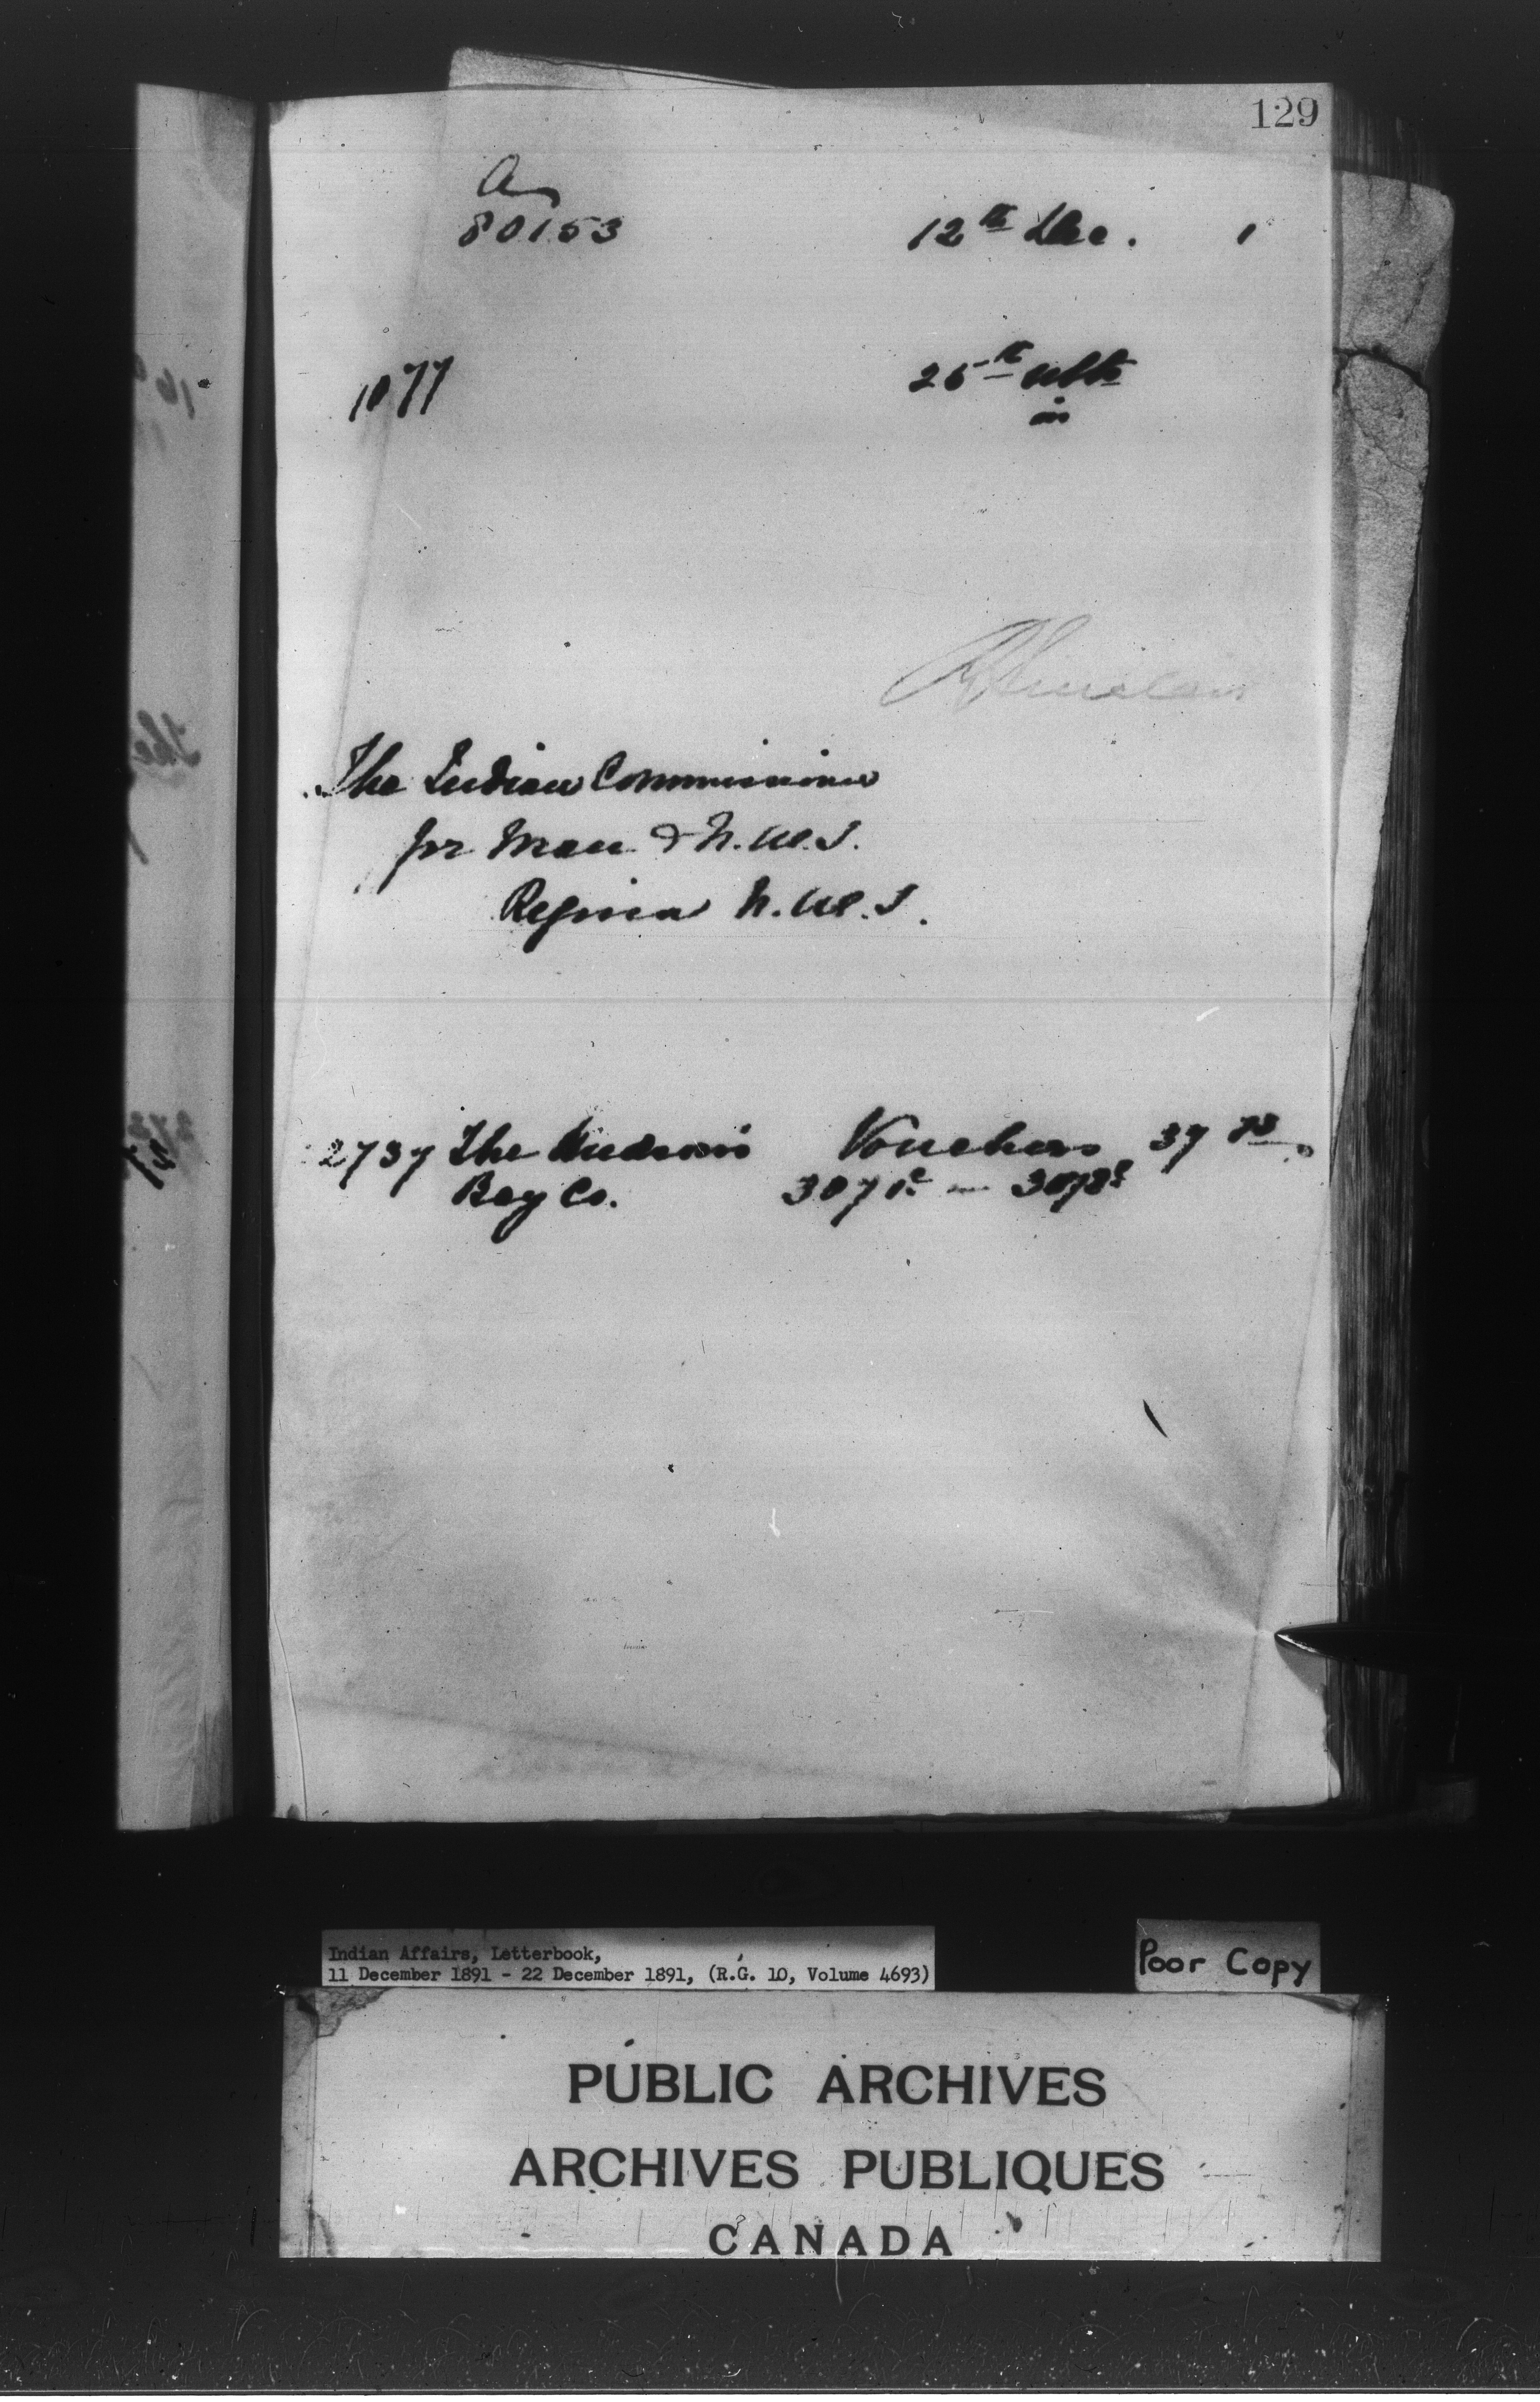 129
A
80153 12th Dec. 1
1077 25th ulto
in
The Indian Commissioner
for Man & N.W.T.
Regina N.W.T.
2737 The Hudson's Vouchers 37
Bay Co.
Indian Affairs, Letterbook,
11 December 1891 - 22 December 1891, (R.G. 10, Volume 4693)
Poor Copy
PUBLIC ARCHIVES
ARCHIVES PUBLIQUES
CANADA